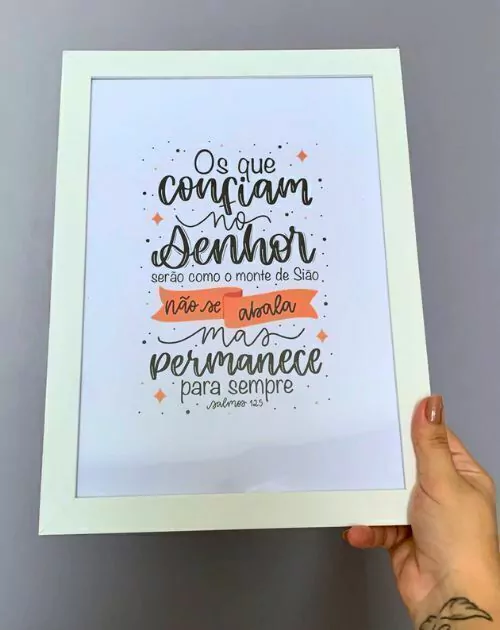 Os que
confiam
no
Senhor
serão como o monte de Sião
não se abala
mas
permanece
para sempre
salmos 125